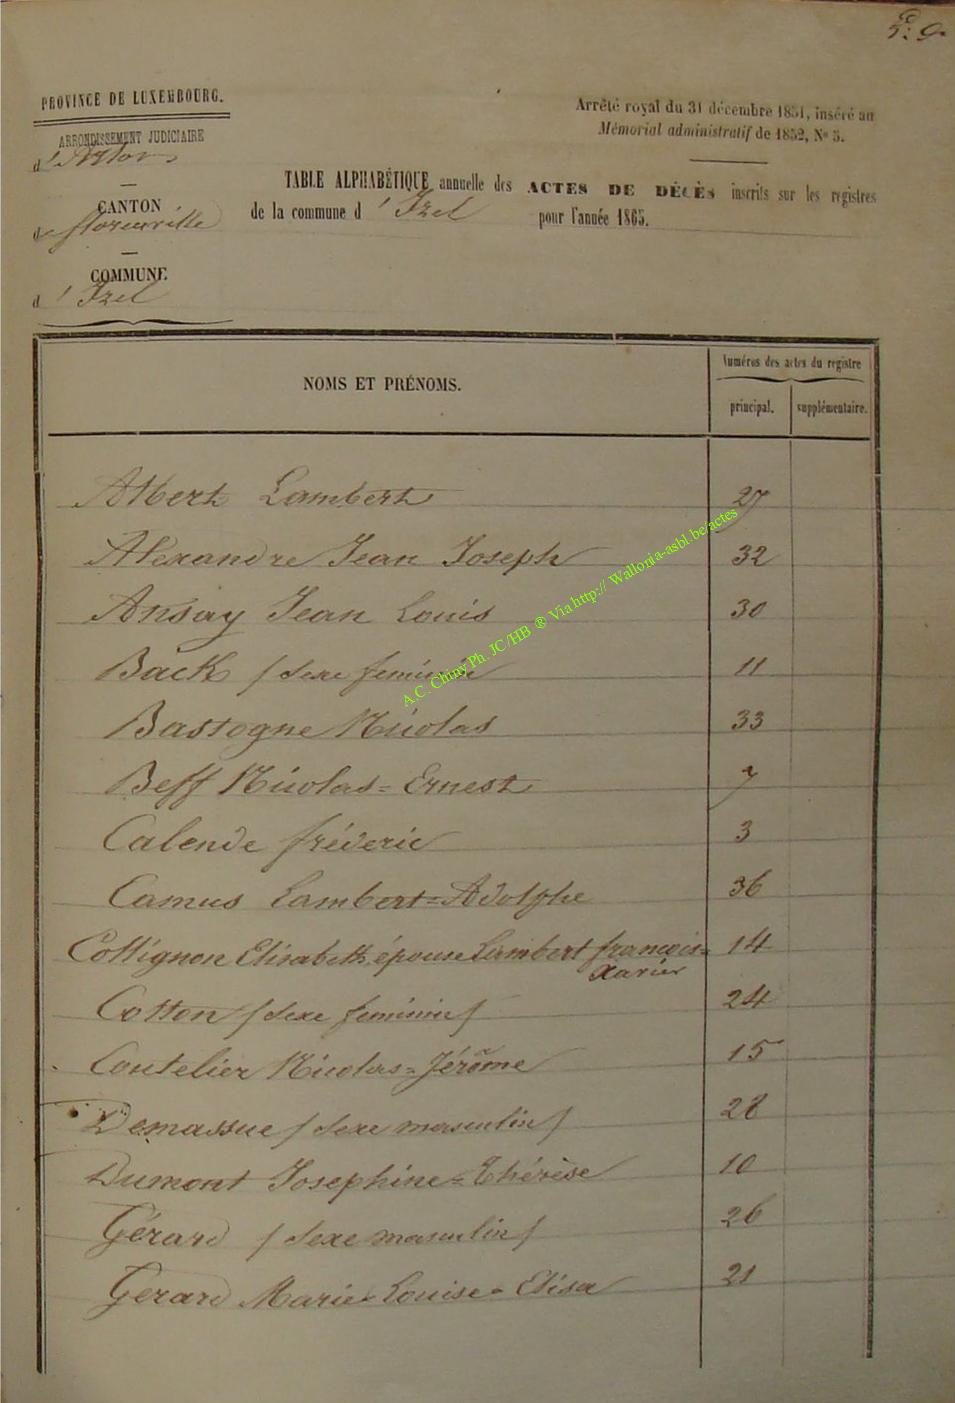 PROVINCE DE LUXEMBOURG.
ARRONDISSEMENT JUDICIAIRE
d'Arlon
CANTON
de florenville
COMMUNE
d'Izel
Arrêté royal du 31 décembre 1851, inséré au
Mémorial administratif de 1852, No 5.
TABLE ALPHABÉTIQUE annuelle des ACTES DE DÉCÈS inscrits sur les registres
de la commune d'Izel pour l'année 1865.
NOMS ET PRÉNOMS.
Numéros des actes du registre
principal. supplémentaire.
Albert Lambert 27
Alexandre Jean Joseph 32
Ansay Jean Louis 30
Back / sexe feminin 11
Bastogne Nicolas 33
Beff Nicolas=Ernest 7
Calende fréderic 3
Camus Lambert=Adolphe 36
Collignon Elisabeth, épouse Lambert francois= 14
Xavier
Cotton / sexe feminin / 24
Coutelier Nicolas=Jérôme 15
Demassue / sexe masculin / 28
Dumont Josephine=Thérèse 10
Gérard / sexe masculin / 26
Gerard Marie=Louise=Elisa 21
A.C. Chiny Ph. JC/HB ® Via http:// Wallonia-asbl.be/actes